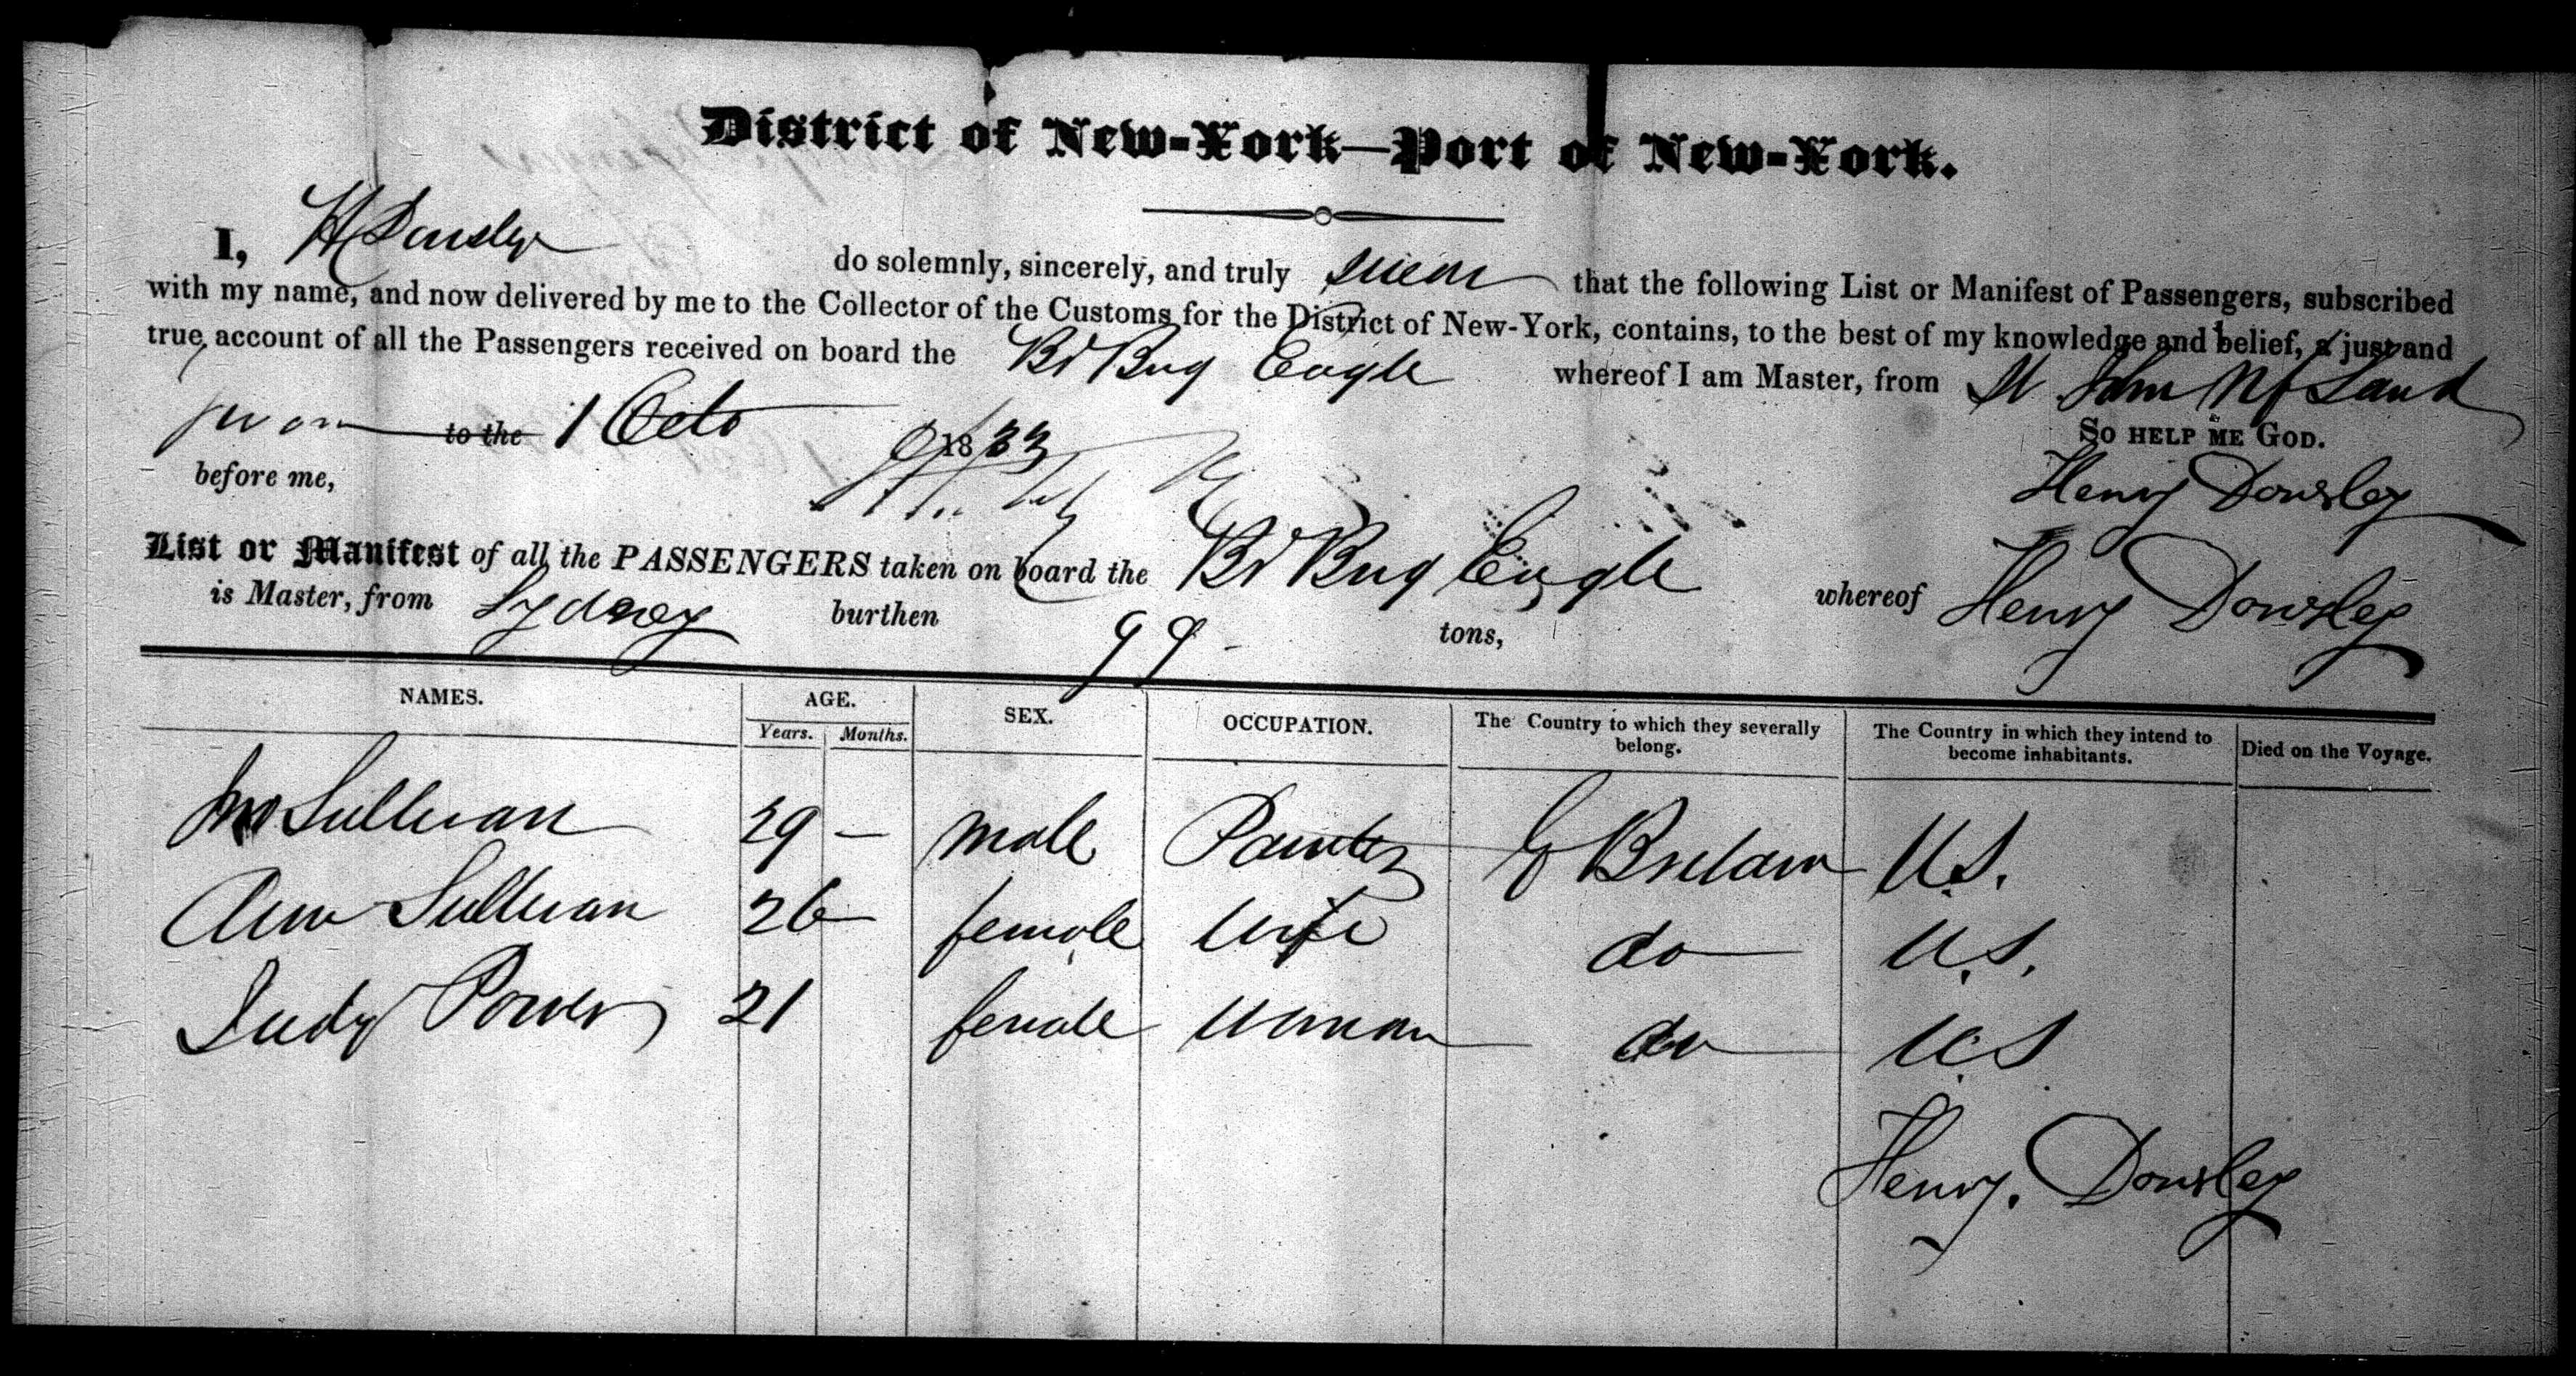 District of New-York—Port of New-York.
I, H Dowsley do solemnly, sincerely, and truly swear that the following List or Manifest of Passengers, subscribed
with my name, and now delivered by me to the Collector of the Customs for the District of New-York, contains, to the best of my knowledge and belief, a just and
true account of all the Passengers received on board the Br Brig Eagle whereof I am Master, from St John Nf Land
sworn to the 1 Octo 1833 So help me God.
before me, Henry Dowsley
List or Manifest of all the PASSENGERS taken on board the Br Brig Eagle whereof Henry Dowsley
is Master, from Sydney burthen 99 tons,
NAMES. AGE. SEX. OCCUPATION. The Country to which they severally belong. The Country in which they intend to become inhabitants. Died on the Voyage.
Years. Months.
Jno Sullivan 29 — male Painter G Britain U.S.
Ann Sullivan 26 female Wife do U.S.
Judy Power 21 female Woman do U.S
Henry. Dowsley